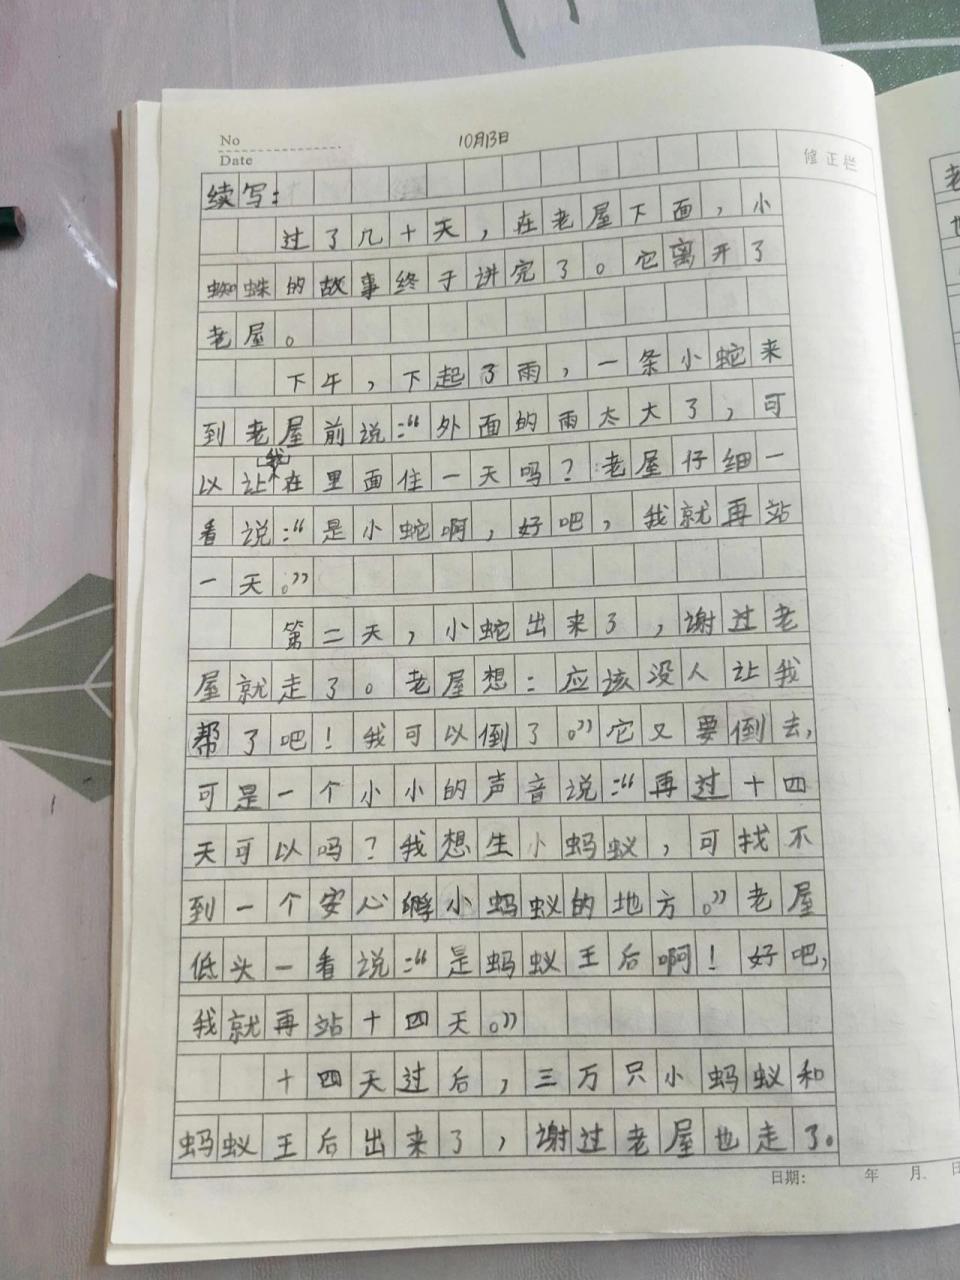 No
10月13日
Date
修正栏
续写:
过了几十天,在老屋下面,小
蜘蛛的故事终于讲完了。它离开了
老屋。
下午,下起了雨,一条小蛇来
到老屋前说:“外面的雨太大了,可
以让我在里面住一天吗?老屋仔细一
看说:“是小蛇啊,好吧,我就再站
一天。”
第二天,小蛇出来了,谢过老
屋就走了。老屋想:应该没人让我
帮了吧!我可以倒了。”它又要倒去,
可是一个小小的声音说:“再过十四
天可以吗?我想生小蚂蚁,可找不
到一个安心孵小蚂蚁的地方。”老屋
低头一看说:“是蚂蚁王后啊!好吧,
我就再站十四天。”
十四天过后,三万只小蚂蚁和
蚂蚁王后出来了,谢过老屋也走了。
日期: 年 月 日
老
也